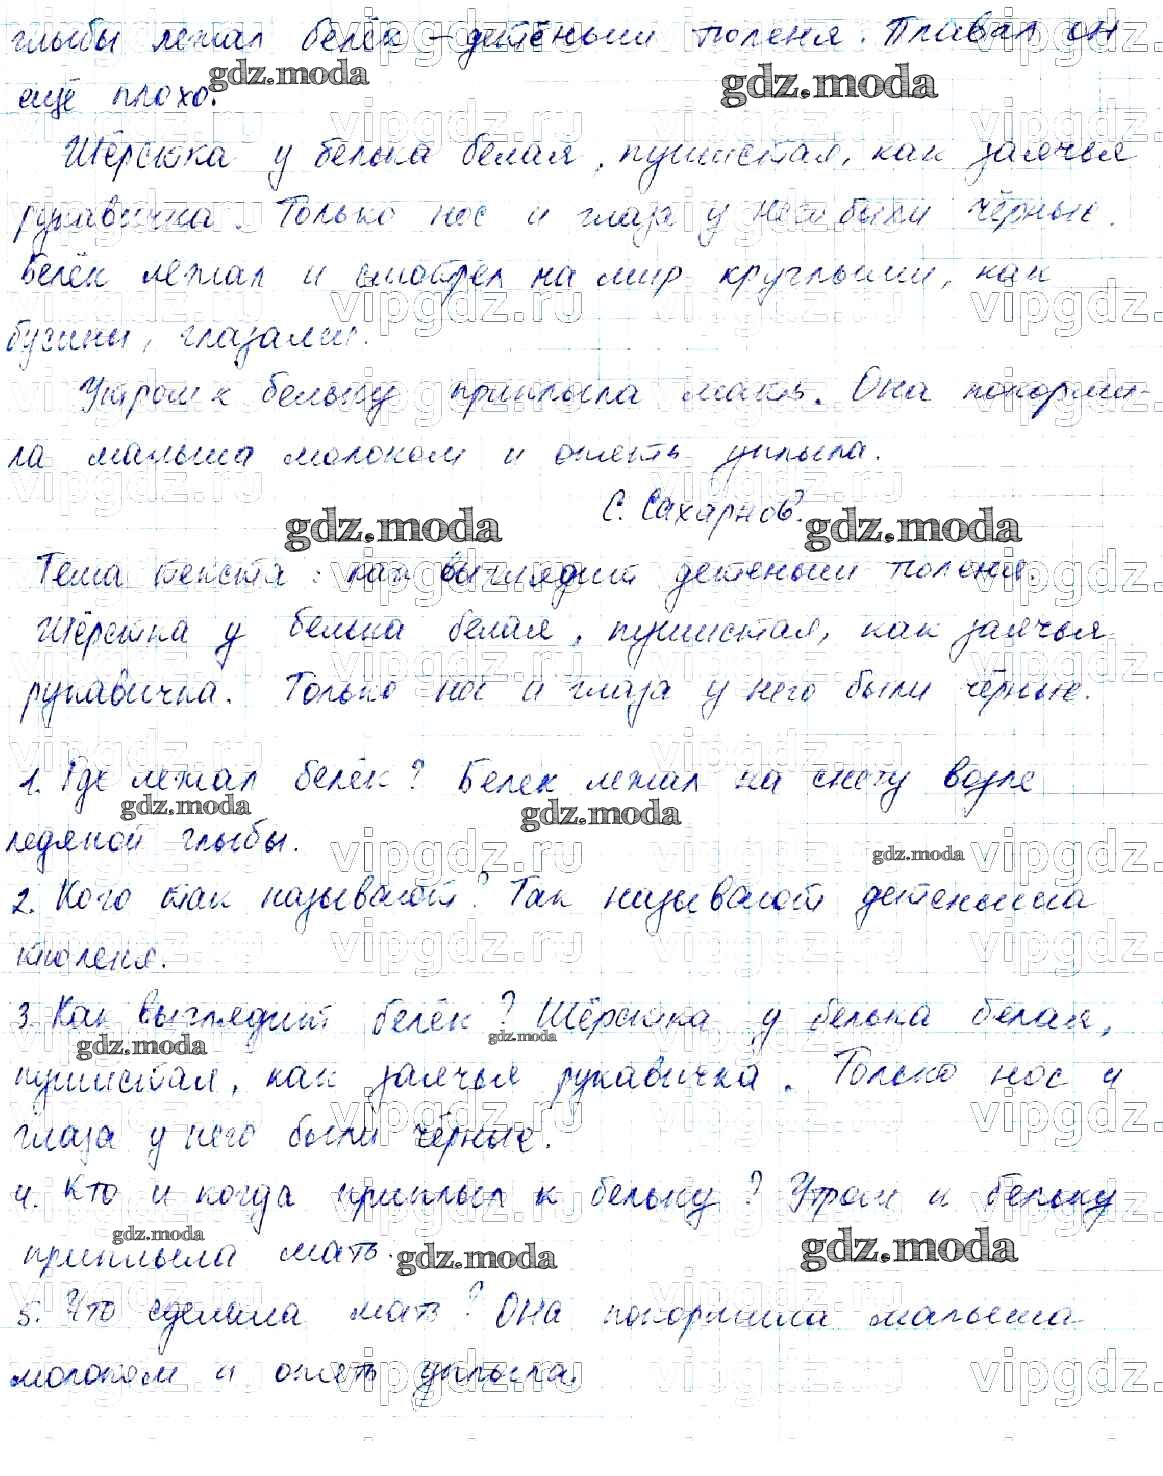 глыбы лежал белёк – детёныш тюленя. Плавал он
ещё плохо.
Шёрстка у белька белая, пушистая, как заячья
рукавичка. Только нос и глаза у него были чёрные.
Белёк лежал и смотрел на мир круглыми, как
бусины, глазами.
Утром к бельку приплыла мать. Она покорми-
ла малыша молоком и опять уплыла.
С. Сахарнов.
Тема текста: как выглядит детеныш тюленя.
Шёрстка у белька белая, пушистая, как заячья
рукавичка. Только нос и глаза у него были чёрные.
1. Где лежал белёк? Белек лежал на снегу возле
ледяной глыбы.
2. Кого так называют? Так называют детеныша
тюленя.
3. Как выглядит белёк? Шёрстка у белька белая,
пушистая, как заячья рукавичка. Только нос и
глаза у него были чёрные.
4. Кто и когда приплыл к бельку? Утром к бельку
приплыла мать.
5. Что сделала мать? Она покормила малыша
молоком и опять уплыла.